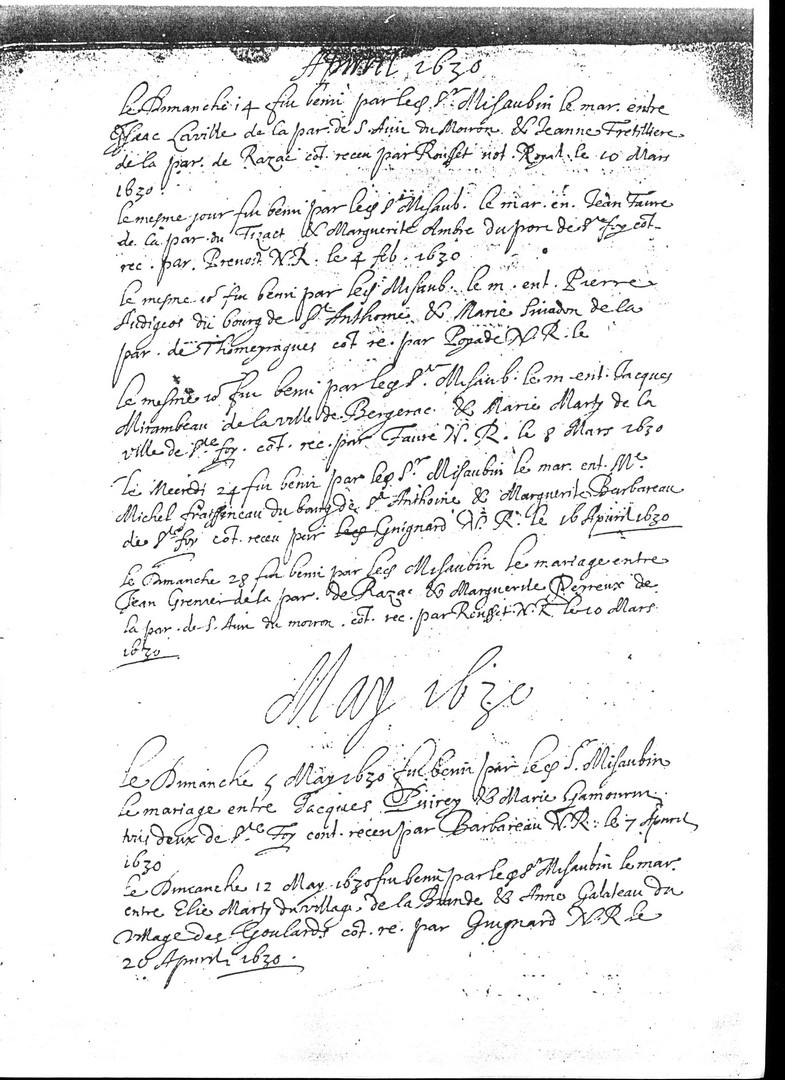 Apvril 1630
le Dimanche 14 fut beni par led. Sr. Misaubin le mar. entre
Isaac Laville de la par. de S. Avit du Moiron & Jeanne Fretilliere
de la par. de Razac cot. receu par Rousset not. Royal. le 10 Mars
1630.
le mesme jour fut beni par led. Sr. Misaub. le mar. en. Jean Faure
de la par. du Tizact & Marguerite Ambre du port de Ste foy cot.
rec. par. Prevost N.R. le 4 feb. 1630
le mesme jor fut beni par led Misaub. le m. ent. Pierre
Audigeos du bourg de St Anthoine & Marie de la
par. de Thomeyragues cot re. par Poyade N.R. le
le mesme jor fut beni par led Sr. Misaub. le m. ent. Jacques
Mirambeau de la ville de Bergerac & Marie Marty de la
ville de Ste foy. cot. rec. par Faure N. R. le 8 Mars 1630
le Mecredi 24 fut beni par led Sr Misaubin le mar. ent. Me
Michel du bourg de St Anthoine & Marguerite Barbareau
de Ste foy cot. receu par Guignard N. R. le 16 Apvril 1630
le Dimanche 28 fut beni par led Misaubin le mariage entre
Jean Grenier de la par. de Razac & Marguerite Peyreux de
la par. de S. Avit du moiron. cot. rec. par Rousset N.R. le 10 Mars
1630
May 1630
le Dimanche 5 May 1630 fut beni par led Sr. Misaubin
le mariage entre Jacques Puirey & Marie
tous deux de Ste Foy cont. receu par Barbareau N.R. le 7 Apvril
1630
le Dimanche 12 May 1630 fut beni par led Sr Misaubin le mar.
entre Elie Marty du village de la Brande & Anne Galateau du
village des Goulards cot. re. par Guignard N.R le
20 Apvril 1630.